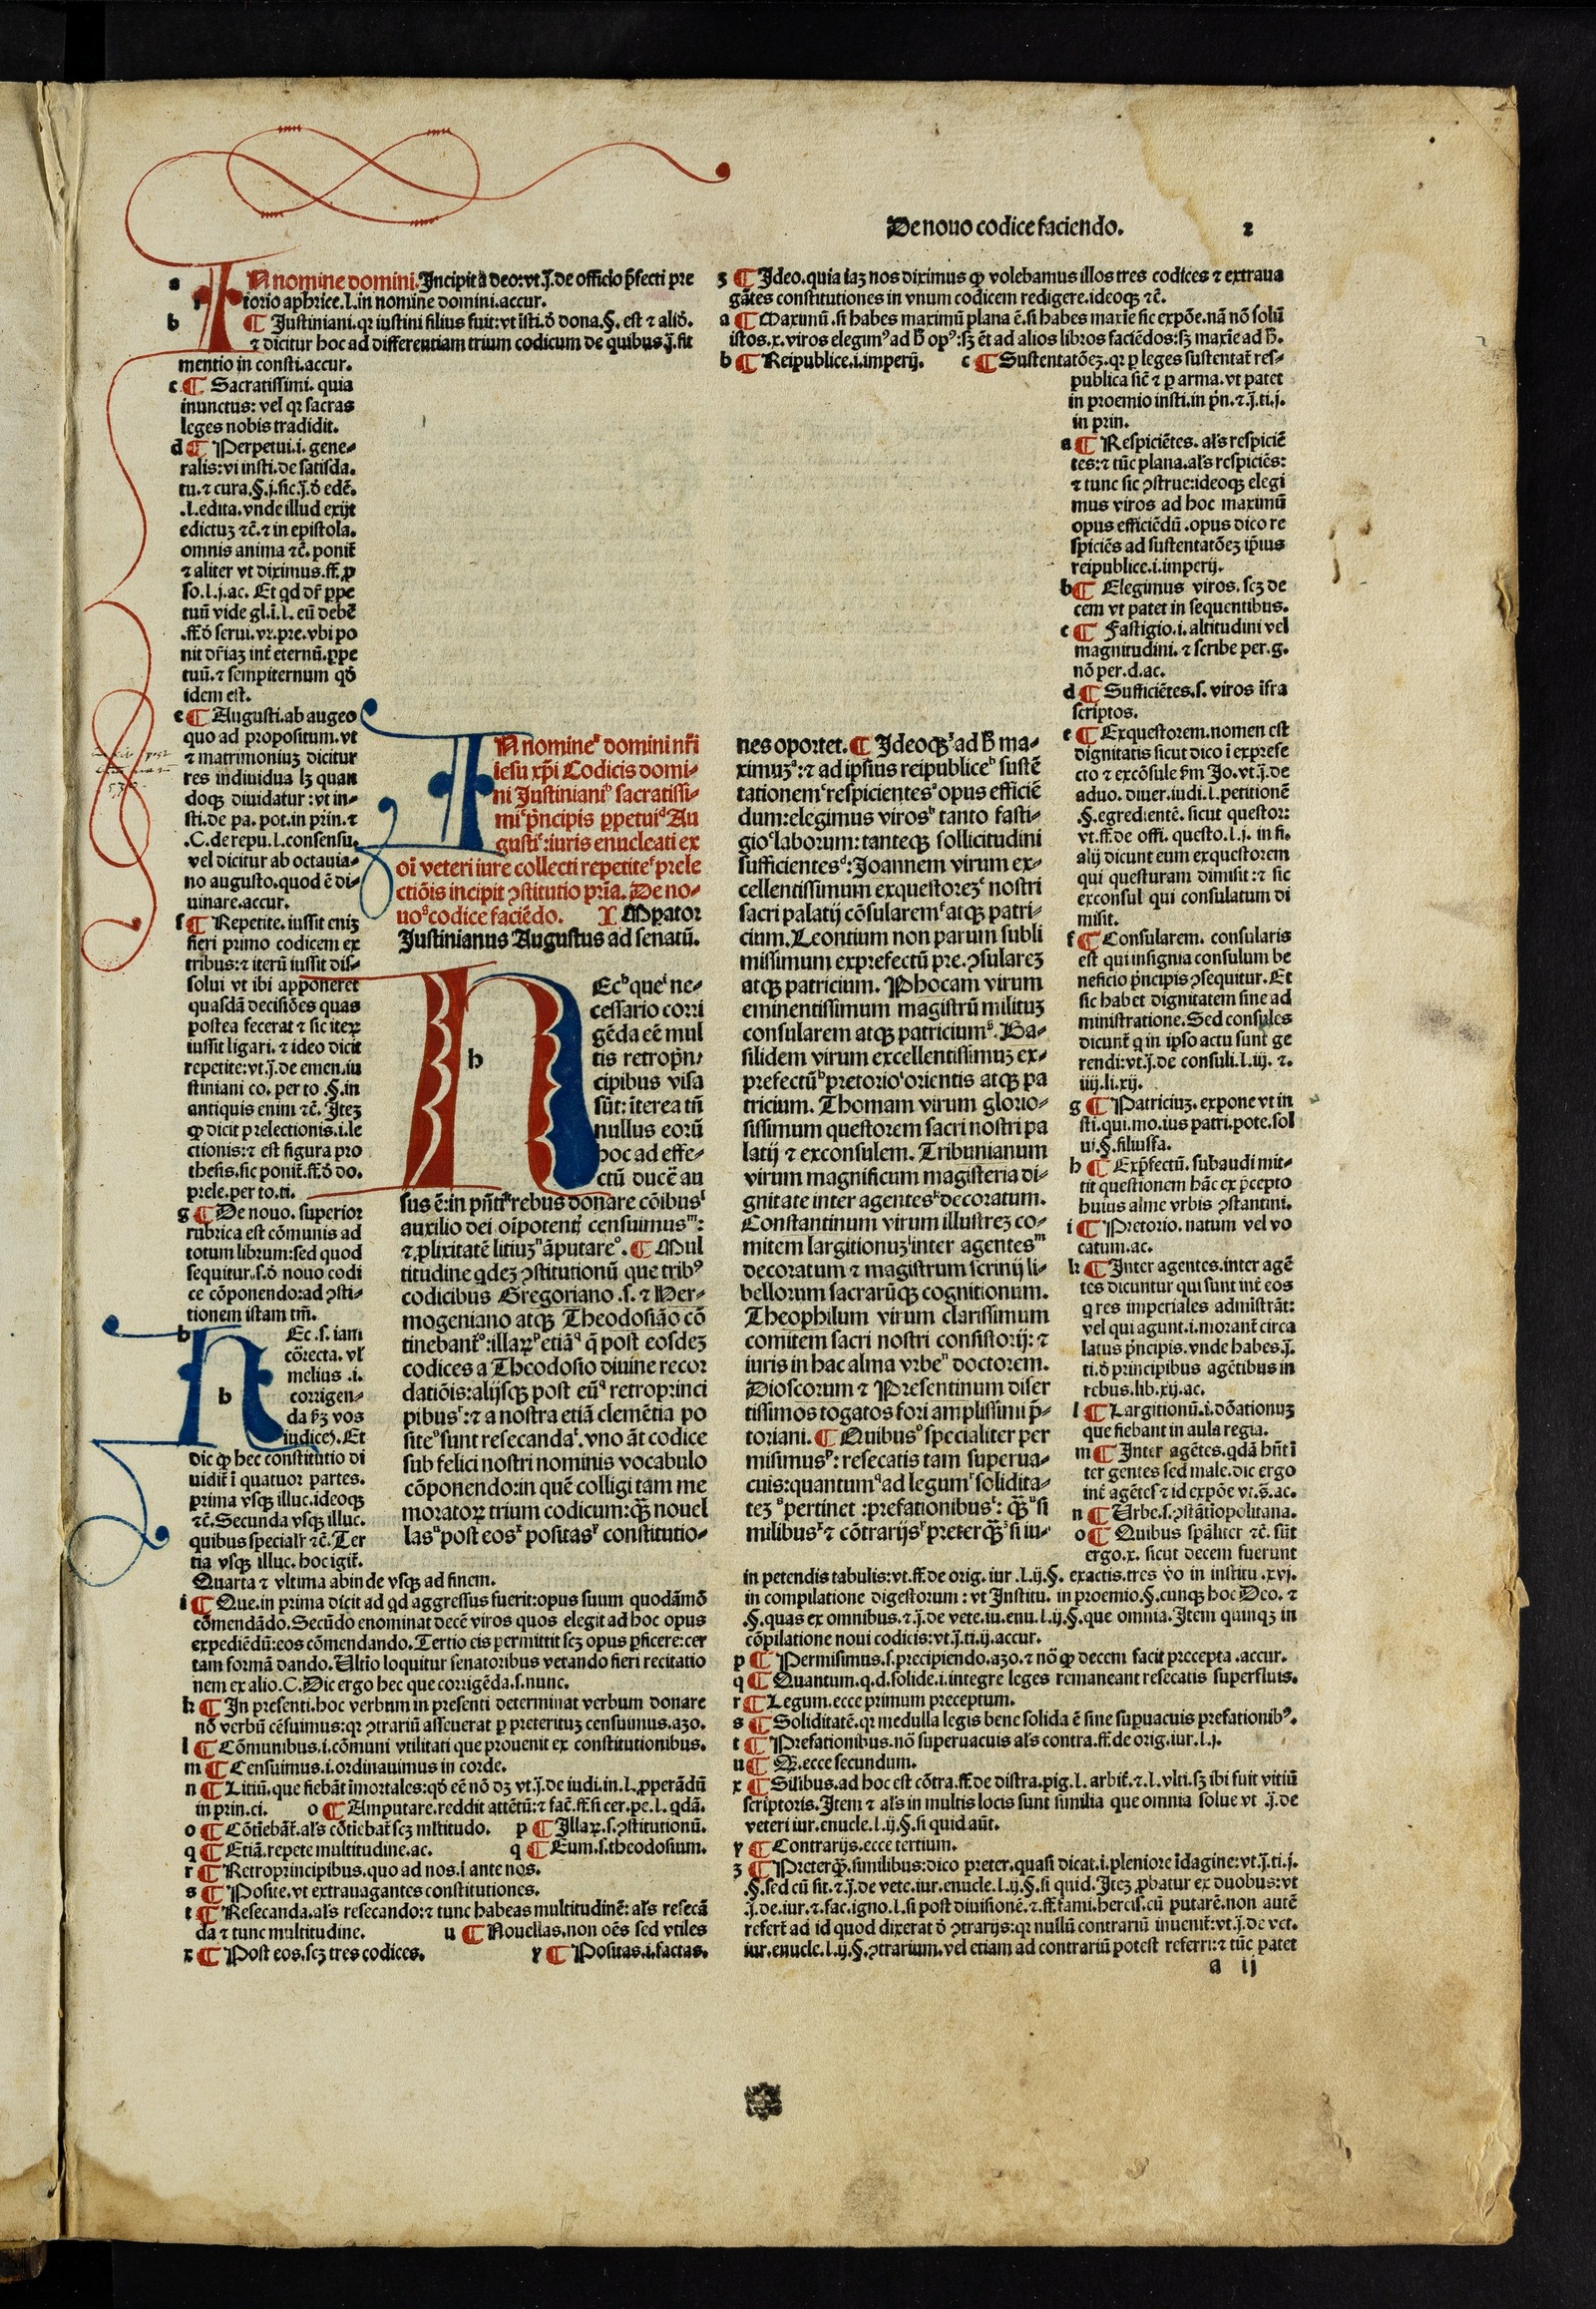 De nouo codice faciendo. 2
a IN nomine domini. Incipit a deo: vt.j̄. de officio p̄fecti pre
torio aphrice.l. in nomine domini.accur.
b ¶ Justiniani. qꝛ iustini filius fuit: vt isti.ō dona.§. est ⁊ aliō.
⁊ dicitur hoc ad differentiam trium codicum de quibus.j̄. fit
mentio in consti.accur.
c ¶ Sacratissimi. quia
inunctus: vel qꝛ sacras
leges nobis tradidit.
d ¶ Perpetui.i. gene-
ralis: vi insti.de satisda.
tu.⁊ cura.§.j.sic.j̄.ō edē.
.l.edita.vnde illud exijt
edictuꝫ ⁊c̄.⁊ in epistola.
omnis anima ⁊c̄. ponit̄
⁊ aliter vt diximus.ff.ꝓ
so.l.j.ac. Et qd dr̄ ꝑpe
tuū vide gl.ī.l. eū debē̄
.ff.ō serui.vr.pre.vbi po
nit dr̄iaꝫ int̄ eternū.ꝑpe
tuū.⁊ sempiternum qō
idem est.
e ¶ Augusti.ab augeo
quo ad propositum.vt
⁊ matrimoniuꝫ dicitur
res indiuidua lꝫ quan
doqꝫ diuidatur : vt in-
sti.de pa. pot.in prin.⁊
.C.de repu.l.consensu.
vel dicitur ab octauia-
no augusto.quod ē di-
uinare.accur.
f ¶ Repetite. iussit eniꝫ
fieri primo codicem ex
tribus:⁊ iterū iussit dis-
solui vt ibi apponeret
quasdā decisiōes quas
postea fecerat ⁊ sic iteꝝ
iussit ligari. ⁊ ideo dicit
repetite: vt.j̄.de emen.iu
stiniani co. per to .§.in
antiquis enim ⁊c̄. Jteꝫ
ꝙ dicit prelectionis.i.le
ctionis:⁊ est figura pro
thesis.sic ponit̄.ff.ō do.
prele.per to.ti.
g ¶ De nouo. superior
rubrica est cōmunis ad
totum librum: sed quod
sequitur.s.ō nouo codi
ce cōponendo: ad ꝯsti-
tionem istam tm̄.
h HEc .s. iam
cōrecta. vl̄
melius .i.
corrigen-
da s̄ꝫ vos
iudices. Et
dic ꝙ hec constitutio di
uidit̄ ī quatuor partes.
prima vsqꝫ illuc.ideoqꝫ
⁊c̄. Secunda vsqꝫ illuc.
quibus specialr̄ ⁊c̄. Ter
tia vsqꝫ illuc. hoc igit̄.
Quarta ⁊ vltima abinde vsqꝫ ad finem.
i ¶ Que.in prima dicit ad qd aggressus fuerit: opus suum quodāmō
cōmendādo. Secūdo enominat decē viros quos elegit ad hoc opus
expediēdū: eos cōmendando. Tertio eis permittit scꝫ opus ꝑficere: cer
tam formā dando. Ultīo loquitur senatoribus vetando fieri recitatio
nem ex alio.C. Dic ergo hec que corrigēda.s.nunc.
k ¶ In presenti. hoc verbum in presenti determinat verbum donare
nō verbū cēsuimus: qꝛ ꝯtrariū asseuerat ꝑ preterituꝫ censuimus.azo.
l ¶ Cōmunibus.i.cōmuni vtilitati que prouenit ex constitutionibus.
m ¶ Censuimus.i.ordinauimus in corde.
n ¶ Litiū.que fiebāt īmortales: qō eē nō dꝫ vt.j̄.de iudi.in.l.ꝓperādū
in prin.ci. o ¶ Amputare.reddit attētū:⁊ fac̄.ff.si cer.pe.l. qdā.
o ¶ Cōtīebāt̄.al̄s cōtiebat̄ scꝫ mltitudo. p ¶ Illaꝝ.s.ꝯstitutionū.
q ¶ Etiā.repete multitudine.ac. q ¶ Eum.s.theodosium.
r ¶ Retroprincipibus.quo ad nos.i ante nos.
s ¶ Posite.vt extrauagantes constitutiones.
t ¶ Resecanda.al̄s resecando:⁊ tunc habeas multitudinē: al̄s resecā
da ⁊ tunc multitudine. u ¶ Nouellas.non oēs sed vtiles
x ¶ Post eos.scꝫ tres codices. y ¶ Positas.i.factas.
IN nomine domini nr̄i
iesu xp̄i Codicis domi-
ni Justiniani sacratissi-
mi p̄ncipis ꝑpetui Au
gusti: iuris enucleati ex
oī veteri iure collecti repetite prele
ctiōis incipit ꝯstitutio pr̄ia. De no-
uo codice faciēdo. IMpator
Justinianus Augustus ad senatū.
HEc que ne-
cessario corri
gēda eē mul
tis retropn̄-
cipibus visa
sūt: īterea tn̄
nullus eorū
hoc ad effe-
ctū ducē au
sus ē: in pn̄ti rebus donare cōibus
auxilio dei oīpotenti censuimus:
⁊ ꝓlixitatē litiuꝫ āputare. ¶ Mul
titudine qdeꝫ ꝯstitutionū que tribꝰ
codicibus Gregoriano .s. ⁊ Her-
mogeniano atqꝫ Theodosiāo cō
tinebant̄: illaꝝ etiā q̄ post eosdeꝫ
codices a Theodosio diuine recor
datiōis: alijsqꝫ post eū retroprinci
pibus:⁊ a nostra etiā clemētia po
site sunt resecanda. vno āt codice
sub felici nostri nominis vocabulo
cōponendo: in quē colligi tam me
moratoꝝ trium codicum: qꝙ nouel
las post eos positas constitutio-
3 ¶ Ideo.quia iaꝫ nos diximus ꝙ volebamus illos tres codices ⁊ extraua
gātes constitutiones in vnum codicem redigere. ideoqꝫ ⁊c̄.
a ¶ Maximū .si habes maximū plana ē. si habes maxīe sic expōe. nā nō solū
istos.x. viros elegimꝰ ad h̄ opꝰ: sꝫ ēt ad alios libros faciēdos: sꝫ maxīe ad h̄.
b ¶ Reipublice.i.imperij. c ¶ Sustentatōeꝫ.qꝛ ꝑ leges sustentat̄ res-
publica sic̄ ⁊ ꝑ arma. vt patet
in proemio insti.in pn̄.⁊.j̄.ti.j.
in prin.
nes oportet. ¶ Ideoqꝫ ad h̄ ma-
ximuꝫ:⁊ ad ipsius reipublice sustē
tationem respicientes opus efficiē
dum: elegimus viros tanto fasti-
gio laborum: tanteqꝫ sollicitudini
sufficientes: Joannem virum ex-
cellentissimum exquestoreꝫ nostri
sacri palatij cōsularem atqꝫ patri-
cium. Leontium non parum subli
missimum exprefectū pre.ꝯsulareꝫ
atqꝫ patricium. Phocam virum
eminentissimum magistrū militūꝫ
consularem atqꝫ patricium. Ba-
silidem virum excellentissimuꝫ ex-
prefectū pretorio orientis atqꝫ pa
tricium. Thomam virum glorio-
sissimum questorem sacri nostri pa
latij ⁊ exconsulem. Tribunianum
virum magnificum magisteria di-
gnitate inter agentes decoratum.
Constantinum virum illustreꝫ co-
mitem largitionuꝫ inter agentes
decoratum ⁊ magistrum scrinij li-
bellorum sacrarūqꝫ cognitionum.
Theophilum virum clarissimum
comitem sacri nostri consistorij: ⁊
iuris in hac alma vrbe doctorem.
Dioscorum ⁊ Presentinum diser
tissimos togatos fori amplissimi p̄-
toriani. ¶ Quibus specialiter per
misimus: resecatis tam superua-
cuis: quantum ad legum solidita-
teꝫ pertinet : prefationibus: qꝙ si
milibus ⁊ cōtrarijs preterqꝙ si iu-
a ¶ Respiciētes. al̄s respiciē
tes:⁊ tūc plana. al̄s respiciēs:
⁊ tunc sic ꝯstrue: ideoqꝫ elegi
mus viros ad hoc maximū
opus efficiēdū .opus dico re
spiciēs ad sustentatōeꝫ ip̄ius
reipublice.i.imperij.
b ¶ Elegimus viros. scꝫ de
cem vt patet in sequentibus.
c ¶ Fastigio.i. altitudini vel
magnitudini. ⁊ scribe per.g.
nō per.d.ac.
d ¶ Sufficiētes.s. viros īfra
scriptos.
e ¶ Exquestorem.nomen est
dignitatis sicut dico ī exprefe
cto ⁊ excōsule s̄m Jo.vt.j̄.de
aduo. diuer.iudi.l.petitionē
.§.egredientē. sicut questor:
vt.ff.de offi. questo.l.j. in fi.
alij dicunt eum exquestorem
qui questuram dimisit :⁊ sic
exconsul qui consulatum di
misit.
f ¶ Consularem. consularis
est qui insignia consulum be
neficio p̄ncipis ꝯsequitur. Et
sic habet dignitatem sine ad
ministratione. Sed consules
dicunt̄ q in ipso actu sunt ge
rendi: vt.j̄.de consuli.l.iij. ⁊.
iiij.li.xij.
g ¶ Patriciuꝫ. expone vt in
sti.qui.mo.ius patri.pote.sol
ui.§.filiusfa.
h ¶ Exp̄fectū. subaudi mit-
tit questionem hāc ex p̄cepto
huius alme vrbis ꝯstantini.
i ¶ Pretorio. natum vel vo
catum.ac.
k ¶ Inter agentes.inter agē
tes dicuntur qui sunt int̄ eos
q res imperiales admistrāt:
vel qui agunt.i.morant̄ circa
latus p̄ncipis. vnde habes.j̄.
ti.ō principibus agētibus in
rebus.lib.xij.ac.
l ¶ Largitionū.i.dōationuꝫ
que fiebant in aula regia.
m ¶ Inter agētes. qdā hn̄t ī
ter gentes sed male. dic ergo
int̄ agētes ⁊ id expōe vt.s̄.ac.
n ¶ Urbe.s.ꝯstātīopolitana.
o ¶ Quibus spāliter ⁊c̄. sūt
ergo.x. sicut decem fuerunt
in petendis tabulis: vt.ff.de orig. iur .l.ij.§. exactis.tres vo in institu .xvj.
in compilatione digestorum : vt Institu. in proemio.§.cunqꝫ hoc Deo. ⁊
.§.quas ex omnibus.⁊.j̄.de vete.iu.enu.l.ij.§.que omnia. Item quinqꝫ in
cōpilatione noui codicis: vt.j̄.ti.ij.accur.
p ¶ Permisimus.s.precipiendo.azo.⁊ nō ꝙ decem facit precepta .accur.
q ¶ Quantum.q.d.solide.i.integre leges remaneant resecatis superfluis.
r ¶ Legum.ecce primum preceptum.
s ¶ Soliditatē.qꝛ medulla legis bene solida ē sine supuacuis prefationibꝰ.
t ¶ Prefationibus.nō superuacuis al̄s contra.ff.de orig.iur.l.j.
u ¶ Qꝙ.ecce secundum.
x ¶ Silibus.ad hoc est cōtra.ff.de distra.pig.l. arbit̄.⁊.l.vlti.sꝫ ibi fuit vitiū
scriptoris. Item ⁊ al̄s in multis locis sunt similia que omnia solue vt .j̄.de
veteri iur.enucle.l.ij.§.si quid aūt.
y ¶ Contrarijs.ecce tertium.
3 ¶ Preterqꝙ.similibus: dico preter.quasi dicat.i.pleniore īdagine: vt.j̄.ti.j.
.§.sed cū sit.⁊.j̄.de vete.iur.enucle.l.ij.§.si quid. Iteꝫ ꝓbatur ex duobus: vt
.j̄.de.iur.⁊.fac.igno.l.si post diuisionē.⁊.ff.fami.hercis.cū putarē.non autē
refert̄ ad id quod dixerat ō ꝯtrarijs: qꝛ nullū contrariū inuenit̄: vt.j̄.de vet.
iur.enucle.l.ij.§.ꝯtrarium.vel etiam ad contrariū potest referri:⁊ tūc patet
a ij